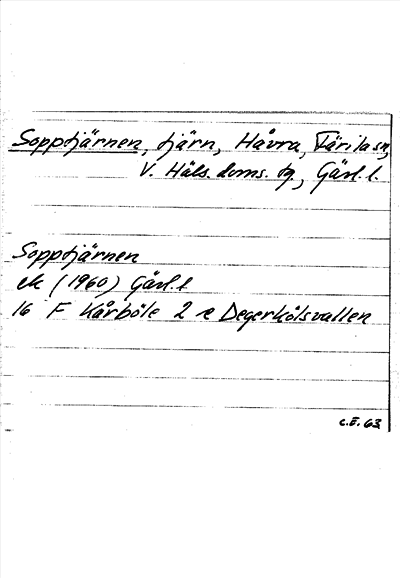 Sopptjärnen, tjärn, Håvra, Färila sn,
V. Häls. doms. tg, Gävl. l.
Sopptjärnen
ek (1960) Gävl. l
16 F Kårböle 2 e Degerkölsvallen
C.E. 63